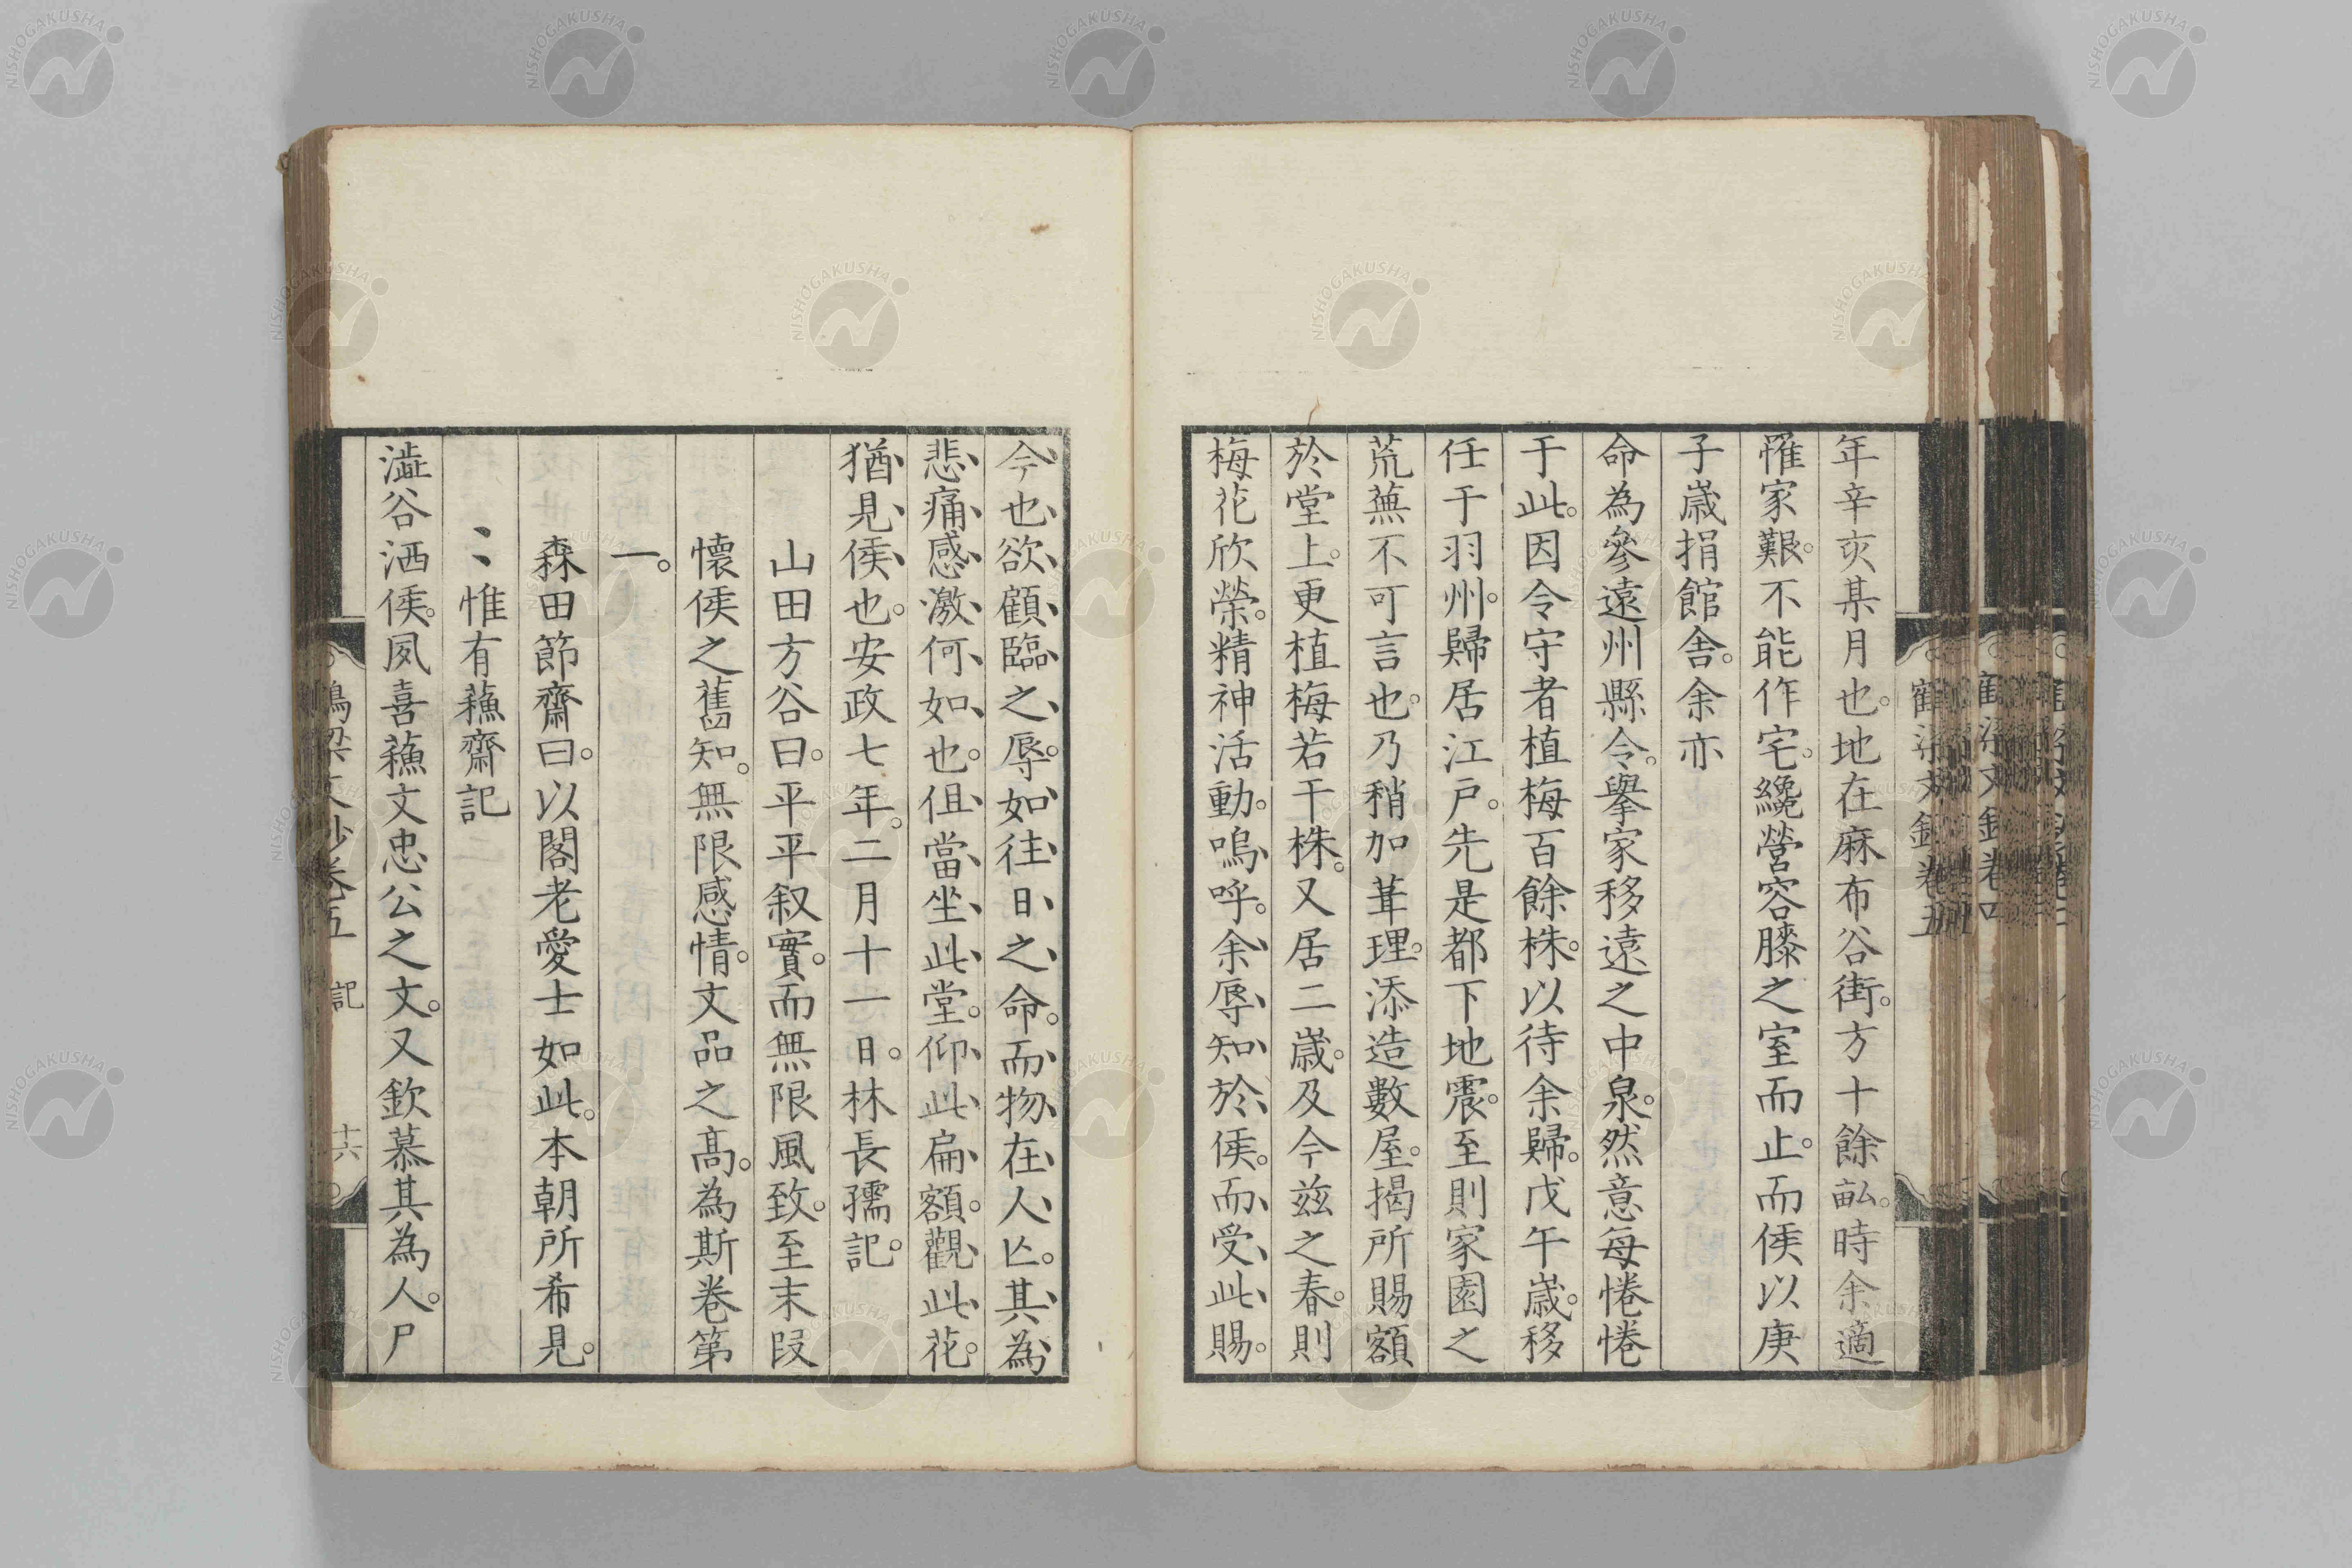 年辛亥某月也。地在麻布谷街。方十餘畝。時余適
罹家艱。不能作宅。纔營容膝之室而止。而侯以庚
子歳捐館舍。余亦
命為參遠州縣令。擧家移遠之中泉。然意每惓惓
于此。因令守者植梅百餘株。以待余歸。戊午歳。移
任于羽州。歸居江戸。先是都下地震。至則家園之
荒蕪不可言也。乃稍加葺理。添造數屋。揭所賜額
於堂上。更植梅若干株。又居二歳。及今茲之春。則
梅花欣榮。精神活動。嗚呼。余辱知於侯。而受此賜。
今也欲顧臨之辱。如往日之命。而物在人亾。其為
悲痛感激何如也。但當坐此堂。仰此扁額。觀此花。
猶見侯也。安政七年。二月十一日。林長孺記。
山田方谷曰。平平叙實。而無限風致。至末段
懷侯之舊知。無限感情。文品之高。為斯卷第
一。
森田節齋曰。以閣老愛士如此。本朝所希見。
惟有蘓齋記
澁谷洒侯。夙喜蘓文忠公之文。又欽慕其為人。尸
鶴梁文鈔卷五 記 十六
NISHOGAKUSHA